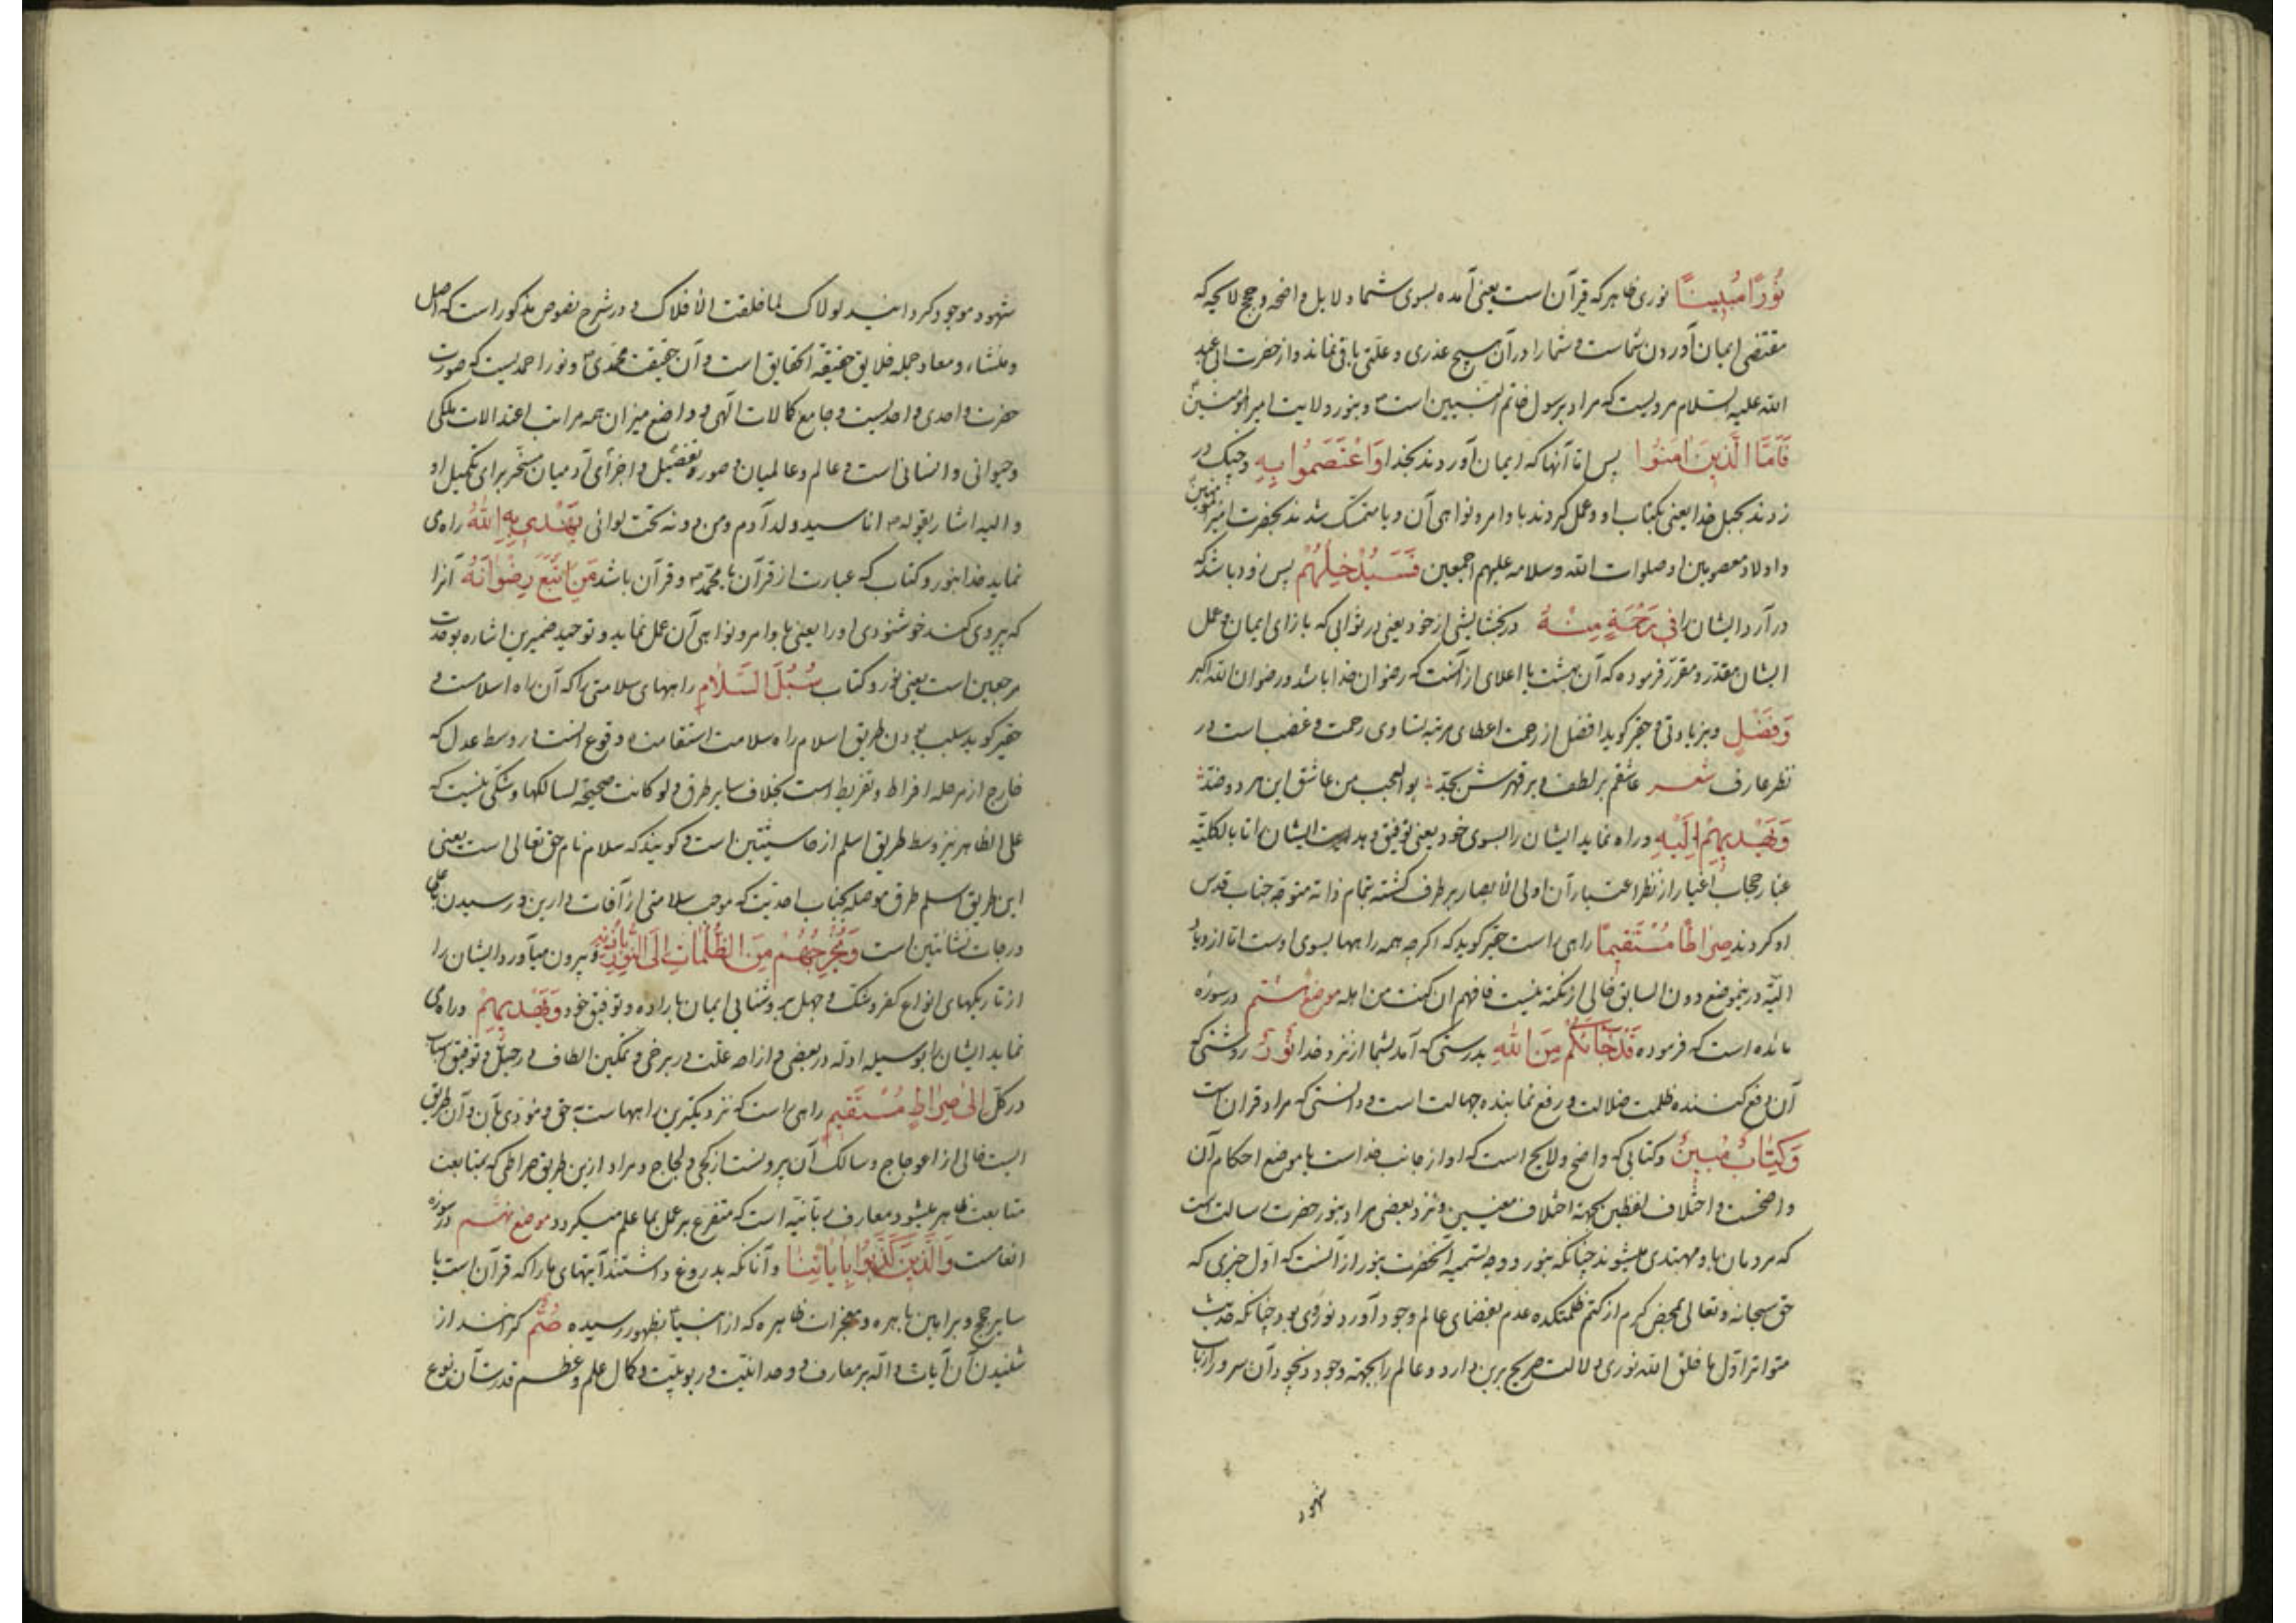 نُورًا مُبِينًا نوری ظاهر که قرآن است یعنی آمده بسوی شما دلایل واضحه و حجج لایحه که
مقتضی ایمان آوردن شماست و شما را در آن هیچ عذری و علتی باقی نماند و از حضرت ابی عبد
الله علیه السلام مرویست که مراد برسول خاتم النبیین است ص و بنور ولایت امیرالمؤمنین
فَاَمَّا الَّذِينَ امَنُوا پس اما آنها که ایمان آوردند بخدا وَاعْتَصَمُوا بِهِ و چنک در
زدند بحبل خدا یعنی بکتاب او و عمل کردند باوامر و نواهی آن و یا متمسک شدند بحضرت امیرالمؤمنین
و اولاد معصومین او صلوات الله وسلامه علیهم اجمعین فَسَيُدْخِلُهُمْ پس زود باشد که
در آرد ایشان را فِي رَحْمَةٍ مِنْهُ در بخشایشی از خود یعنی در ثوابی که بازای ایمان و عمل
ایشان مقدر و مقرر فرموده که آن بهشت یا اعلای از آنست که رضوان خدا باشد و رضوان الله اکبر
وَفَضْلٍ و بزیادتی و حقیر کوید افضل از رحمت اعطای مرتبه تساوی رحمت و غضب است در
نظر عارف شعر عاشقم بر لطف و بر قهرش بجد بوالعجب من عاشق این هر دو ضد
وَيَهْدِيهِمْ اِلَيْهِ و راه نماید ایشان را بسوی خود یعنی توفیق دهد ایشان را تا بالکلیه
غبار حجاب اغیار از نظر اعتبار آن اولی الابصار بر طرف کشته بتمام ذاته متوجه جناب قدس
او کردند صِرَاطًا مُسْتَقِيمًا راهی راست حقیر کوید که اکرچه همه راهها بسوی اوست اما ازدیاد
الیه در ینموضع دون السابق خالی از نکته نیست فافهم ان کنت من اهله موضع هشتم در سوره
مائده است که فرموده قَدْ جَاءَكُمْ مِنَ اللهِ بدرستی که آمد بشما از نزد خدا نُورٌ روشنی که
آن دفع کننده ظلمت ضلالت و رفع نماینده جهالت است و دانستی که مراد قرآن است
وَكِتَابٌ مُبِينٌ و کتابی که واضح و لایح است که او از جانب خداست یا موضع احکام آن
واضحست و اختلاف لفظین بجهة اختلاف معنیین و نزد بعضی مراد بنور حضرت رسالت است
که مردمان باو مهتدی میشوند چنانکه بنور و وجه تسمیه آنحضرت بنور از آنست که اول چیزی که
حق سبحانه و تعالی بمحض کرم از کتم ظلمتکده عدم بفضای عالم وجود آورد نور وی بود چنانکه حدیث
متواتر اول ما خلق الله نوری دلالت صریح برین دارد و عالم را بجهته وجود ذیجود آن سرور ارباب
شهود
شهود موجود کردانید لولاک لما خلقت الافلاک و در شرح نصوص مذکور است که اصل
و منشاء و معاد جمله خلایق حقیقة الحقایق است و آن حقیقت محمدی ص و نور احمدیست که صورت
حضرت واحدی و احدیست و جامع کمالات الهی و واضع میزان همه مراتب اعتدالات ملکی
و حیوانی و انسانی است و عالم و عالمیان و صور و تفضیل و اجزای آدمیان مسخر برای تکمیل او
و الیه اشار بقوله ص انا سید ولد آدم و من دونه تحت لوائی يَهْدِى بِهِ اللهُ راه می
نماید خدا بنور و کتاب که عبارت از قرآن یا محمد ص و قرآن باشد مَنِ اتَّبَعَ رِضْوَانَهُ آنرا
که پیروی کند خوشنودی او را یعنی باوامر و نواهی آن عمل نماید و توحید ضمیرین اشاره بوحدت
مرجعین است یعنی نور و کتاب سُبُلَ السَّلامِ راههای سلامتی را که آن راه اسلامست و
حقیر کوید سبب بودن طریق اسلام راه سلامت استقامت و وقوع آنست در وسط عدل که
خارج از مرحله افراط و تفریط است بخلاف سایر طرق ولو کانت صحیحة لسالکها و شکی نیست که
علی الظاهر نیز وسط طریق اسلم از حاشیتین است و کویند که سلام نام حق تعالی است یعنی
این طریق اسلم طرق موصله بجناب احدیت که موجب سلامتی از آفات دارین و رسیدن باعلی
درجات نشاتین است وَيُخْرِجُهُمْ مِنَ الظُّلُمَاتِ اِلَى النُّورِ بِاِذْنِهِ و بیرون میآورد ایشان را
از تاریکیهای انواع کفر و شک و جهل بروشنایی ایمان باراده و توفیق خود وَيَهْدِيهِمْ و راه می
نماید ایشان را بوسیله ادله در بعضی و ازاحه علت در برخی و تمکین الطاف در جمیل و توفیق اسباب
در کل اِلىٰ صِرَاطٍ مُسْتَقِيمٍ راهی راست که نزدیکترین راههاست بحق و مؤدی بآن و آن طریق
البت خالی از اعوجاج و سالک آن بیرونست از کجی و لجاج و مراد ازین طریق صراطی که بمتابعت
متابعت ظاهر میشود معارف ربانیه است که متفرع بر عمل بما علم میکردد موضع نهم در سوره
انعامست وَالَّذِينَ كَذَّبُوا بِاٰيَاتِنَا و آنانکه بدروغ داشتند آیتهای ما را که قرآن است یا
سایر حجج و براهین باهره و معجزات ظاهره که از انبیا بظهور رسیده صُمٌّ کرانند از
شنیدن آن آیات داله بر معارف و وحدانیت و ربوبیت و کمال علم و عظم قدرت آن نوع